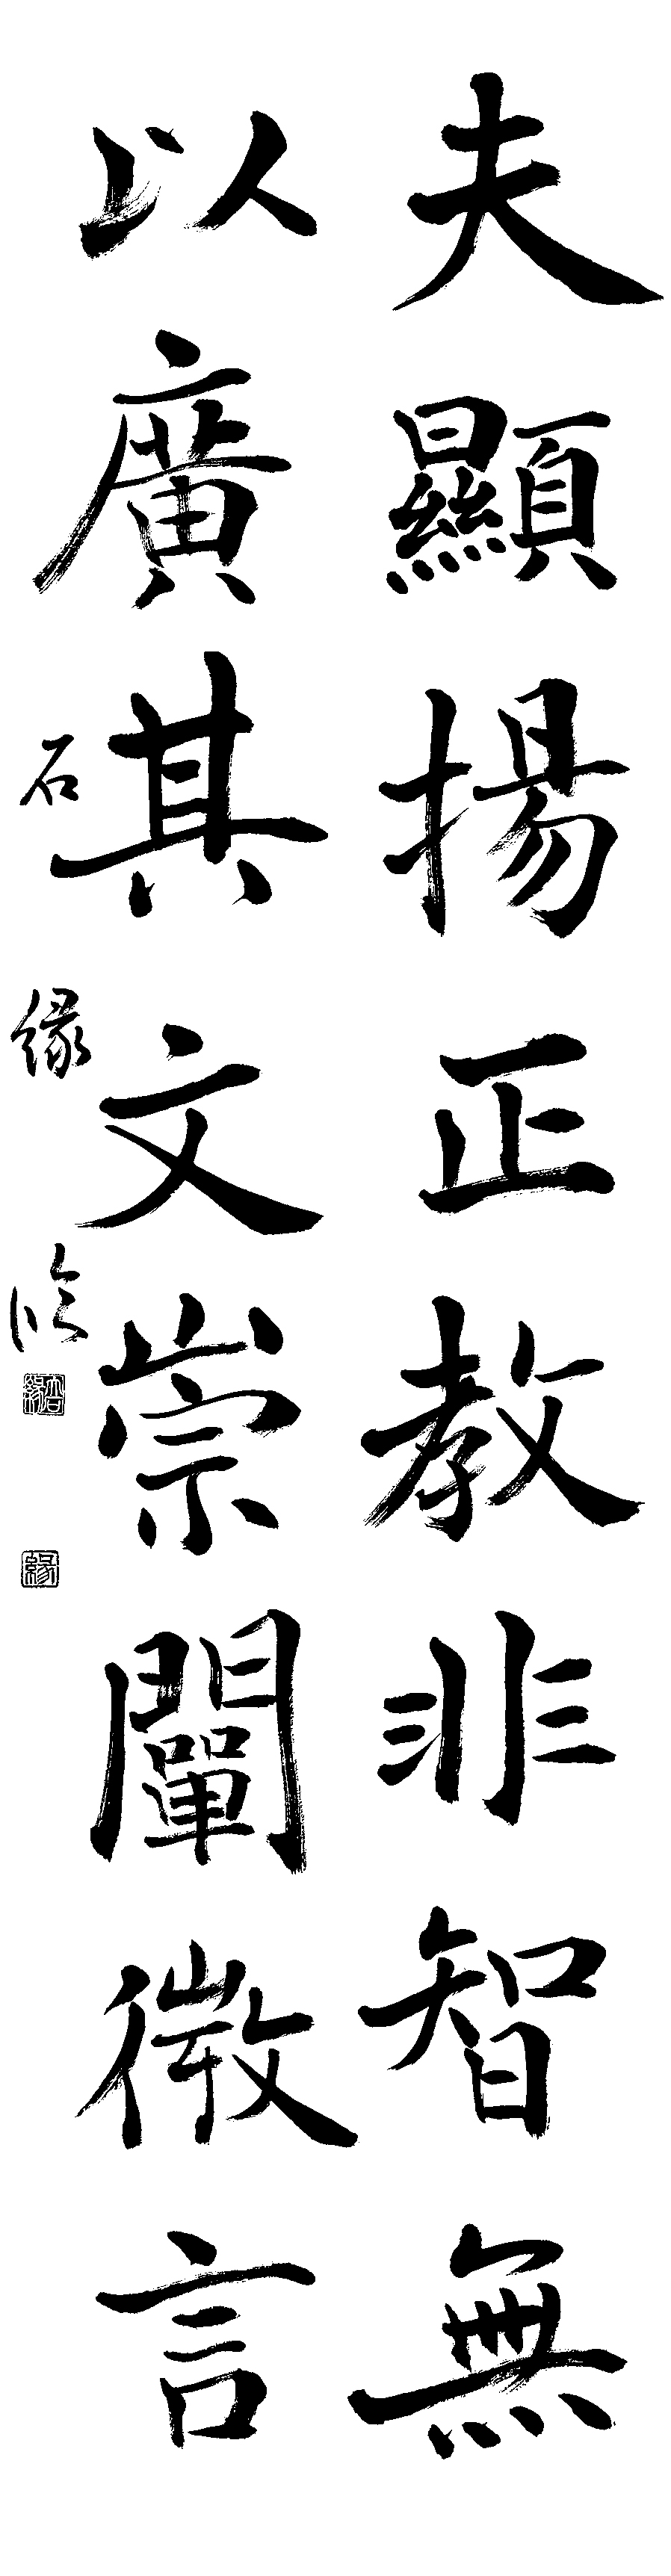 夫顯揚正教非智無
以廣其文崇闡微言
石緣臨